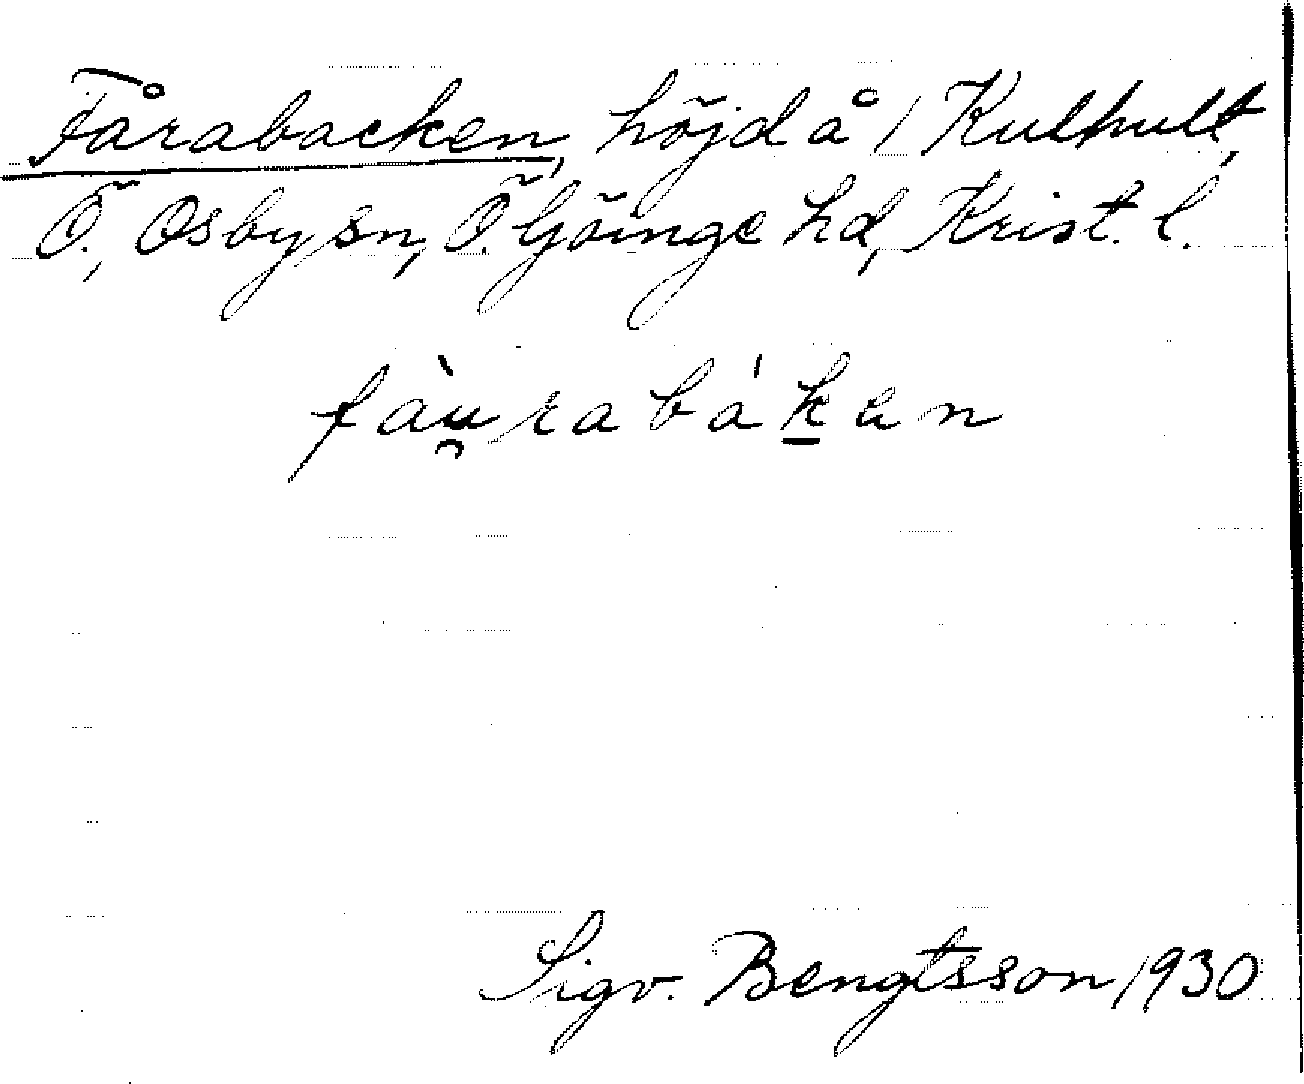 Fårabacken, höjd å 1 Kulhult,
Ö., Osby sn, Ö. Göinge hd, Krist. l.
fàu̯rabák̲en
Sigv. Bengtsson 1930